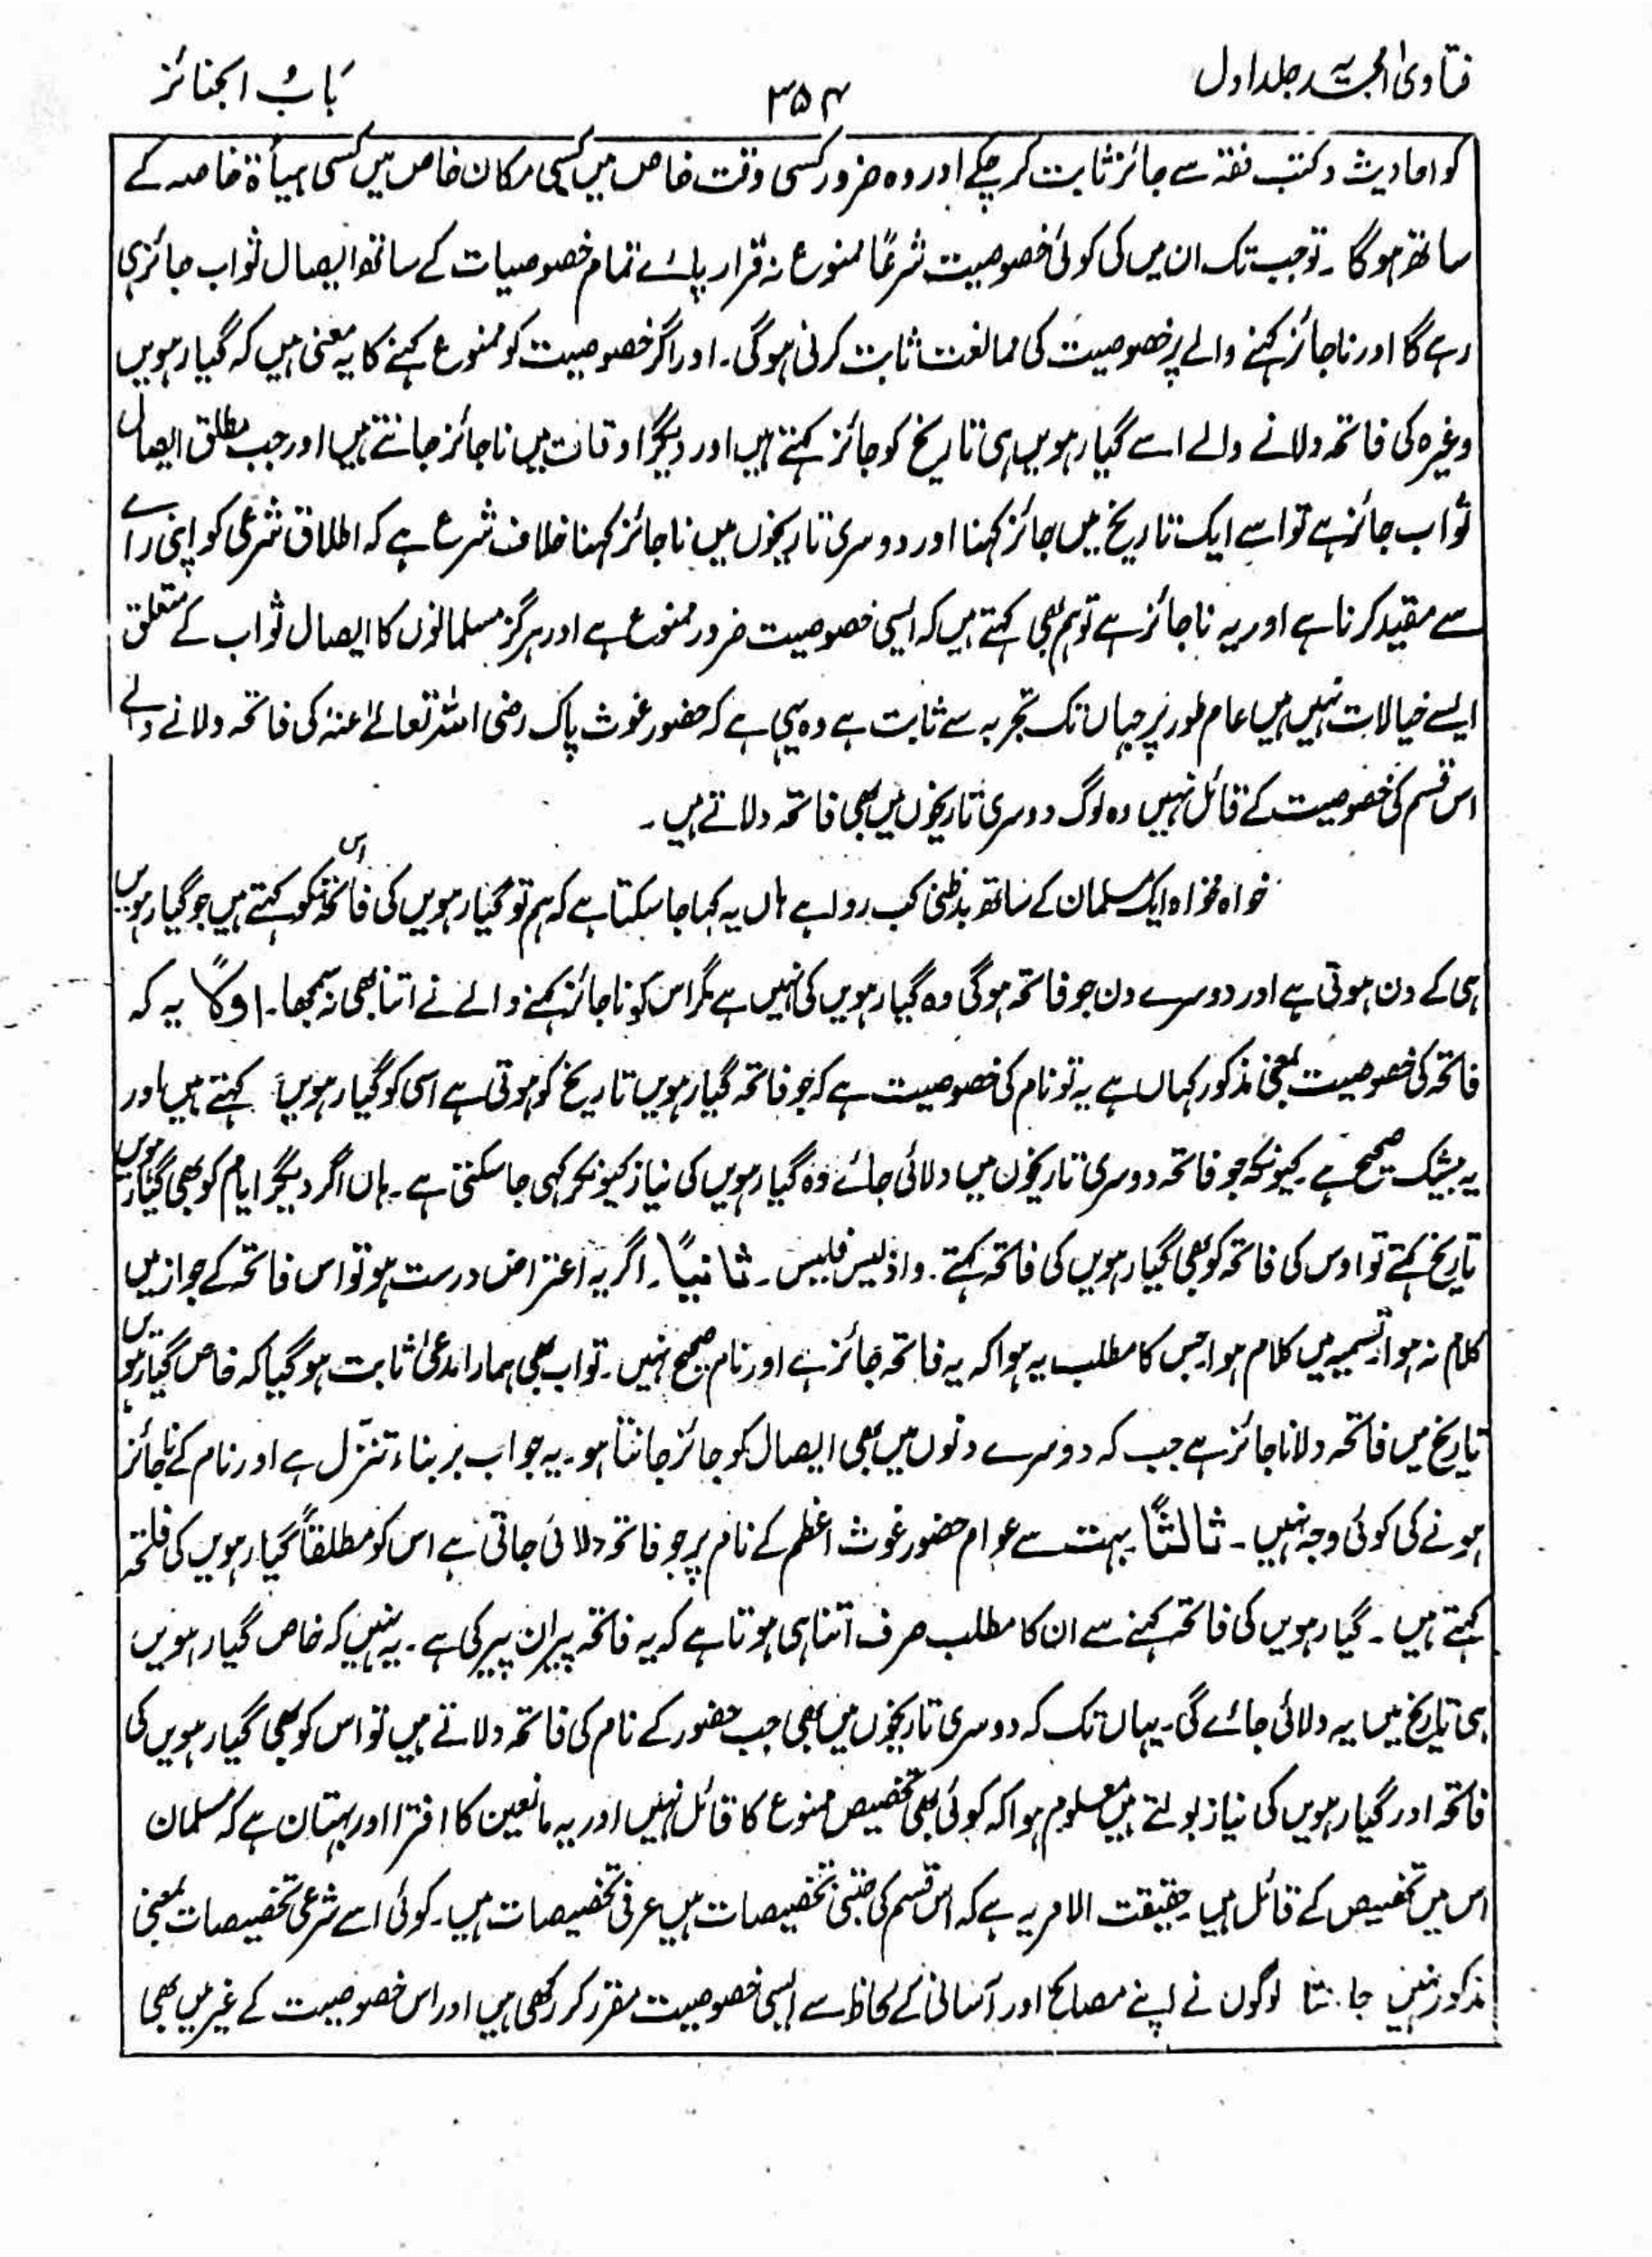 فتاویٰ امجدیہ جلد اول
۳۵۴
باب الجنائز
کو احادیث و کتب فقہ سے جائز ثابت کر چکے اور وہ ضرور کسی وقت خاص میں کسی مکان خاص میں کسی ہیأۃ خاصہ کے
ساتھ ہوگا ۔ تو جب تک ان میں کی کوئی خصوصیت شرعًا ممنوع نہ قرار پائے تمام خصوصیات کے ساتھ ایصال ثواب جائز ہی
رہے گا اور ناجائز کہنے والے پر خصوصیت کی ممانعت ثابت کرنی ہوگی ۔ اور اگر خصوصیت کو ممنوع کہنے کا یہ معنی ہیں کہ گیارہویں
وغیرہ کی فاتحہ دلانے والے اسے گیارہویں ہی تاریخ کو جائز کہتے ہیں اور دیگر اوقات میں ناجائز جانتے ہیں اور جب مطلق ایصال
ثواب جائز ہے تو اسے ایک تاریخ میں جائز کہنا اور دوسری تاریخوں میں ناجائز کہنا خلاف شرع ہے کہ اطلاق شرعی کو اپنی رائے
سے مقید کرنا ہے اور یہ ناجائز ہے تو ہم بھی کہتے ہیں کہ ایسی خصوصیت ضرور ممنوع ہے اور ہرگز مسلمانوں کا ایصال ثواب کے متعلق
ایسے خیالات نہیں ہیں عام طور پر جہاں تک تجربہ سے ثابت ہے وہ یہی ہے کہ حضور غوث پاک رضی اللہ تعالےٰ عنہ کی فاتحہ دلانے والے
اس قسم کی خصوصیت کے قائل نہیں وہ لوگ دوسری تاریخوں میں بھی فاتحہ دلاتے ہیں ۔
خواہ مخواہ ایک مسلمان کے ساتھ بدظنی کب روا ہے ہاں یہ کہا جا سکتا ہے کہ ہم تو گیارہویں کی فاتحہ اس کو کہتے ہیں جو گیارہویں
ہی کے دن ہوتی ہے اور دوسرے دن جو فاتحہ ہوگی وہ گیارہویں کی نہیں ہے مگر اس کو ناجائز کہنے والے نے اتنا بھی نہ سمجھا ۔ اوّلًا یہ کہ
فاتحہ کی خصوصیت بمعنی مذکور کہاں ہے یہ تو نام کی خصوصیت ہے کہ جو فاتحہ گیارہویں تاریخ کو ہوتی ہے اسی کو گیارہویں کہتے ہیں اور
یہ بیشک صحیح ہے ۔ کیونکہ جو فاتحہ دوسری تاریخوں میں دلائی جائے وہ گیارہویں کی نیاز کیونکر کہی جا سکتی ہے ۔ ہاں اگر دیگر ایام کو بھی گیارہویں
تاریخ کہتے تو اوس کی فاتحہ کو بھی گیارہویں کی فاتحہ کہتے ۔ واذ لیس فلیس ۔ ثانیًا ۔ اگر یہ اعتراض درست ہو تو اس فاتحہ کے جواز میں
کلام نہ ہوا تسمیہ میں کلام ہوا جس کا مطلب یہ ہوا کہ یہ فاتحہ جائز ہے اور نام صحیح نہیں ۔ تو اب بھی ہمارا مدعیٰ ثابت ہو گیا کہ خاص گیارہویں
تاریخ میں فاتحہ دلانا جائز ہے جب کہ دوسرے دنوں میں بھی ایصال کو جائز جانتا ہو ۔ یہ جواب بر بناء تنزّل ہے اور نام کے ناجائز
ہونے کی کوئی وجہ نہیں ۔ ثالثًا بہت سے عوام حضور غوث اعظم کے نام پر جو فاتحہ دلائی جاتی ہے اس کو مطلقاً گیارہویں کی فاتحہ
کہتے ہیں ۔ گیارہویں کی فاتحہ کہنے سے ان کا مطلب صرف اتنا ہی ہوتا ہے کہ یہ فاتحہ پیران پیر کی ہے ۔ یہ نہیں کہ خاص گیارہویں
ہی تاریخ میں یہ دلائی جائے گی ۔ یہاں تک کہ دوسری تاریخوں میں بھی جب حضور کے نام کی فاتحہ دلاتے ہیں تو اس کو بھی گیارہویں کی
فاتحہ اور گیارہویں کی نیاز بولتے ہیں معلوم ہوا کہ کوئی بھی تخصیص ممنوع کا قائل نہیں اور یہ مانعین کا افترا اور بہتان ہے کہ مسلمان
اس میں تخصیص کے قائل ہیں حقیقت الامر یہ ہے کہ اس قسم کی جتنی تخصیصات ہیں عرفی تخصیصات ہیں ۔ کوئی اسے شرعی تخصیصات بمعنی
مذکور نہیں جانتا لوگوں نے اپنے مصالح اور آسانی کے لحاظ سے ایسی خصوصیت مقرر کر رکھی ہیں اور اس خصوصیت کے غیر میں بھی